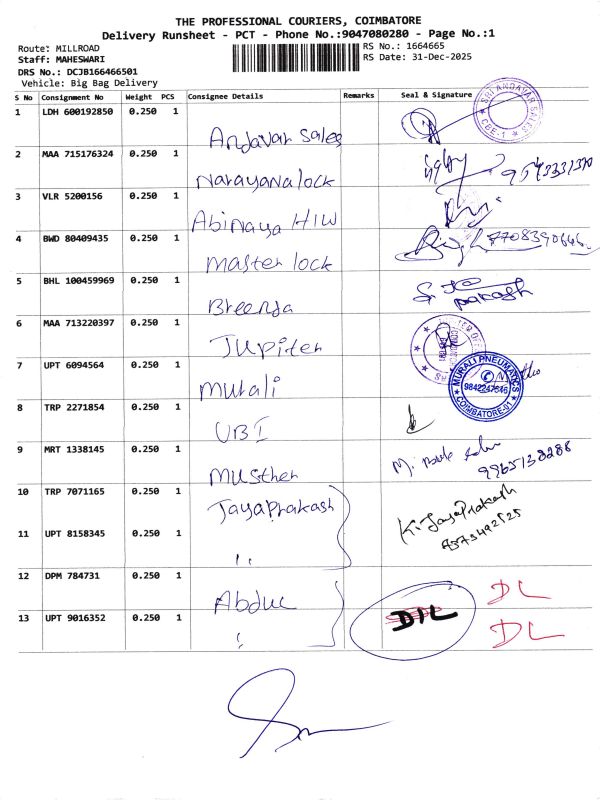 THE PROFESSIONAL COURIERS, COIMBATORE
Delivery Runsheet - PCT - Phone No.:9047080280 - Page No.:1
Route: MILLROAD
RS No.: 1664665
Staff: MAHESWARI
RS Date: 31-Dec-2025
DRS No.: DCJB166466501
Vehicle: Big Bag Delivery
S No Consignment No Weight PCS Consignee Details Remarks Seal & Signature
1 LDH 600192850 0.250 1 Andavar Sales
SRI ANDAVAR SALES CBE-1
2 MAA 715176324 0.250 1 Narayana lock
3 VLR 5200156 0.250 1 Abinaya H/W
4 BWD 80409435 0.250 1 Master lock 7708390646
5 BHL 100459969 0.250 1 Breenda Prakash
6 MAA 713220397 0.250 1 Jupiter
7 UPT 6094564 0.250 1 Murali
MURALI PNEUMATICS 9842247646 COIMBATORE-01
8 TRP 2271854 0.250 1 UBI
9 MRT 1338145 0.250 1 Musther 9965138288
10 TRP 7071165 0.250 1 Jayaprakash K. JayaPrakash
11 UPT 8158345 0.250 1 ''
12 DPM 784731 0.250 1 Abdul DL
13 UPT 9016352 0.250 1 '' D/L DL